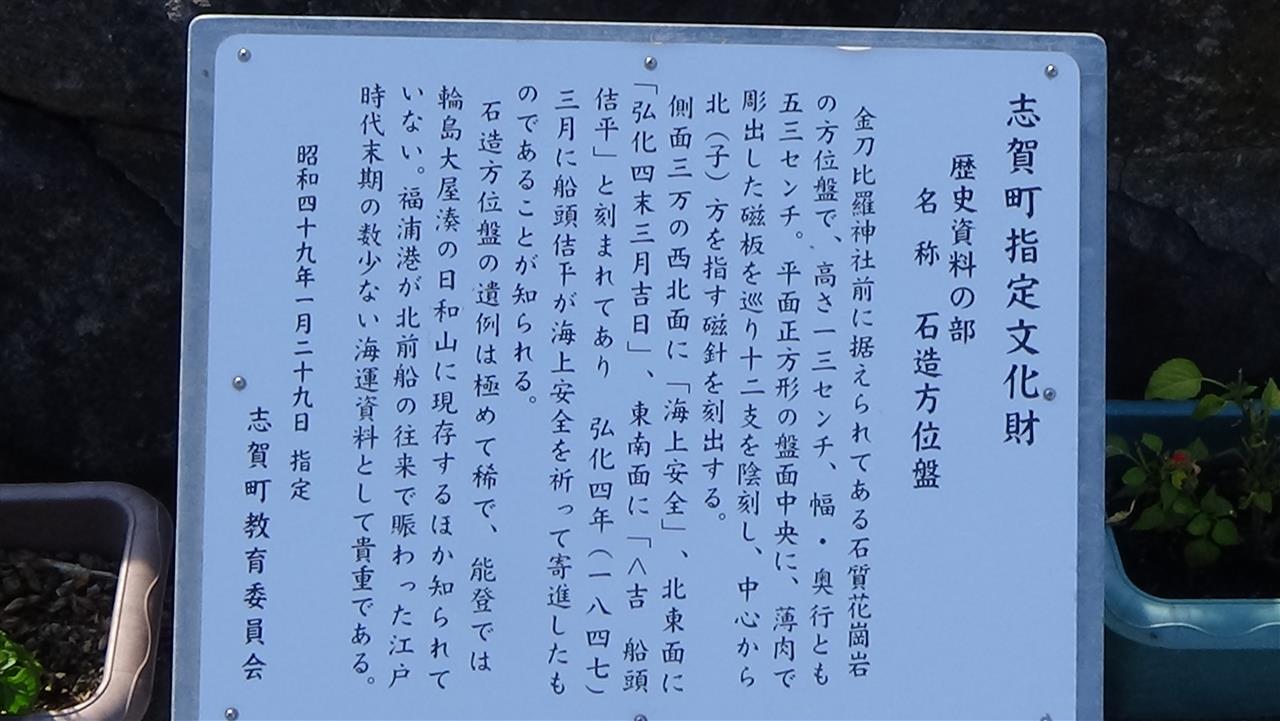 志賀町指定文化財
歴史資料の部
名称 石造方位盤
金刀比羅神社前に据えられてある石質花崗岩
の方位盤で、高さ一三センチ、幅・奥行とも
五三センチ。平面正方形の盤面中央に、薄肉で
彫出した磁板を巡り十二支を陰刻し、中心から
北(子)方を指す磁針を刻出する。
側面三万の西北面に「海上安全」、北東面に
「弘化四末三月吉日」、東南面に「∧吉 船頭
佶平」と刻まれてあり 弘化四年(一八四七)
三月に船頭佶平が海上安全を祈って寄進したも
のであることが知られる。
石造方位盤の遺例は極めて稀で、能登では
輪島大屋湊の日和山に現存するほか知られて
いない。福浦港が北前船の往来で賑わった江戸
時代末期の数少ない海運資料として貴重である。
昭和四十九年一月二十九日 指定
志賀町教育委員会